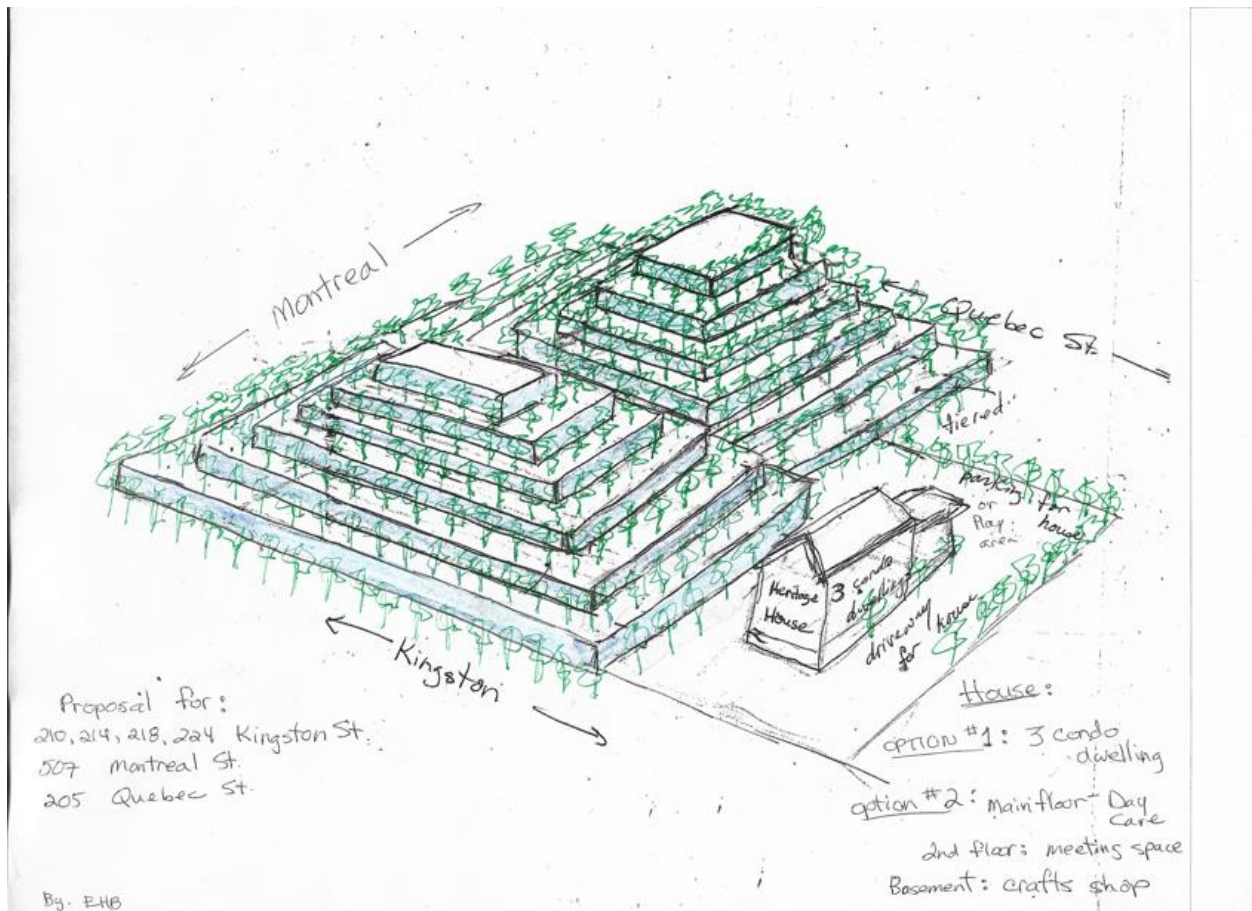 Montreal
Quebec St.
tiered
Parking for house
or
Play
area
Heritage
House
3 condo
dwelling
driveway
for house
Kingston
Proposal for:
210, 214, 218, 224 Kingston St.
507 Montreal St.
205 Quebec St.
House:
OPTION #1: 3 condo
dwelling
option #2: Main floor - Day
Care
2nd floor: meeting space
Basement: crafts shop
By. EHB